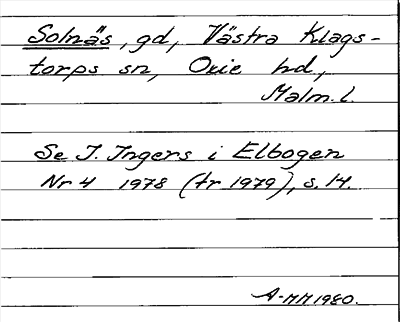 Solnäs, gd, Västra Klags-
torps sn, Oxie hd,
Malm.l.
Se I. Ingers i Elbogen
Nr 4 1978 (tr 1979), s. 14.
A-MM 1980.